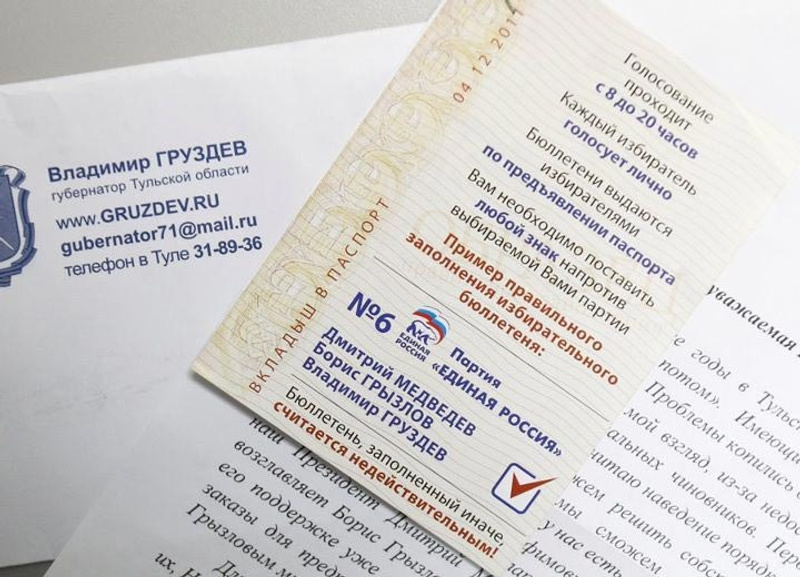 Владимир ГРУЗДЕВ
губернатор Тульской области
www.GRUZDEV.RU
gubernator71@mail.ru
телефон в Туле 31-89-36
ВКЛАДЫШ В ПАСПОРТ
04.12.2011
Голосование
проходит
с 8 до 20 часов
Каждый избиратель
голосует лично
Бюллетени выдаются
избирателями
по предъявлении паспорта
Вам необходимо поставить
любой знак напротив
выбираемой Вами партии
Пример правильного
заполнения избирательного
бюллетеня:
№6
ЕДИНАЯ
РОССИЯ
Партия
«ЕДИНАЯ РОССИЯ»
Дмитрий МЕДВЕДЕВ
Борис ГРЫЗЛОВ
Владимир ГРУЗДЕВ
Бюллетень, заполненный иначе,
считается недействительным!
уважаемая
годы в Тульс
потом». Имеющи
Проблемы копились
мой взгляд, из-за недос
альных чиновников. Пер
читаю наведение порядк
жем решить собс
мы, сможем
у нас есть
наш Президент Дмитрий М
возглавляет Борис Грызло
его поддержке уже
заказы для предп
Грызловым м
их, Н